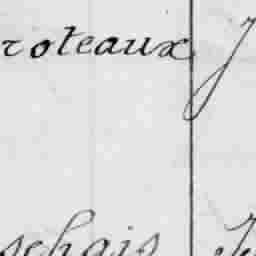 roteaux J
schais